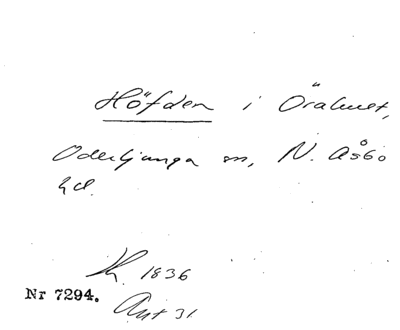 Höfden i Örahult,
Oderljunga sn, N. Åsbo
hd.
K. 1836
Nr 7294.
Ant 31